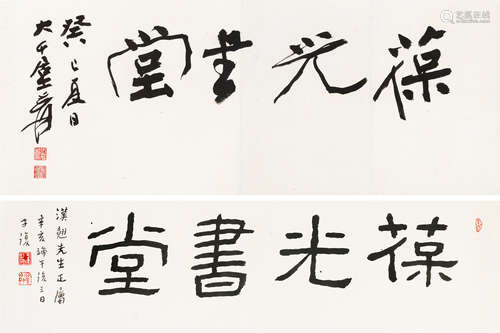 葆光書堂
癸巳夏日
大千張爰
葆光書堂
漢翹先生正屬
辛亥端午後三日
子復